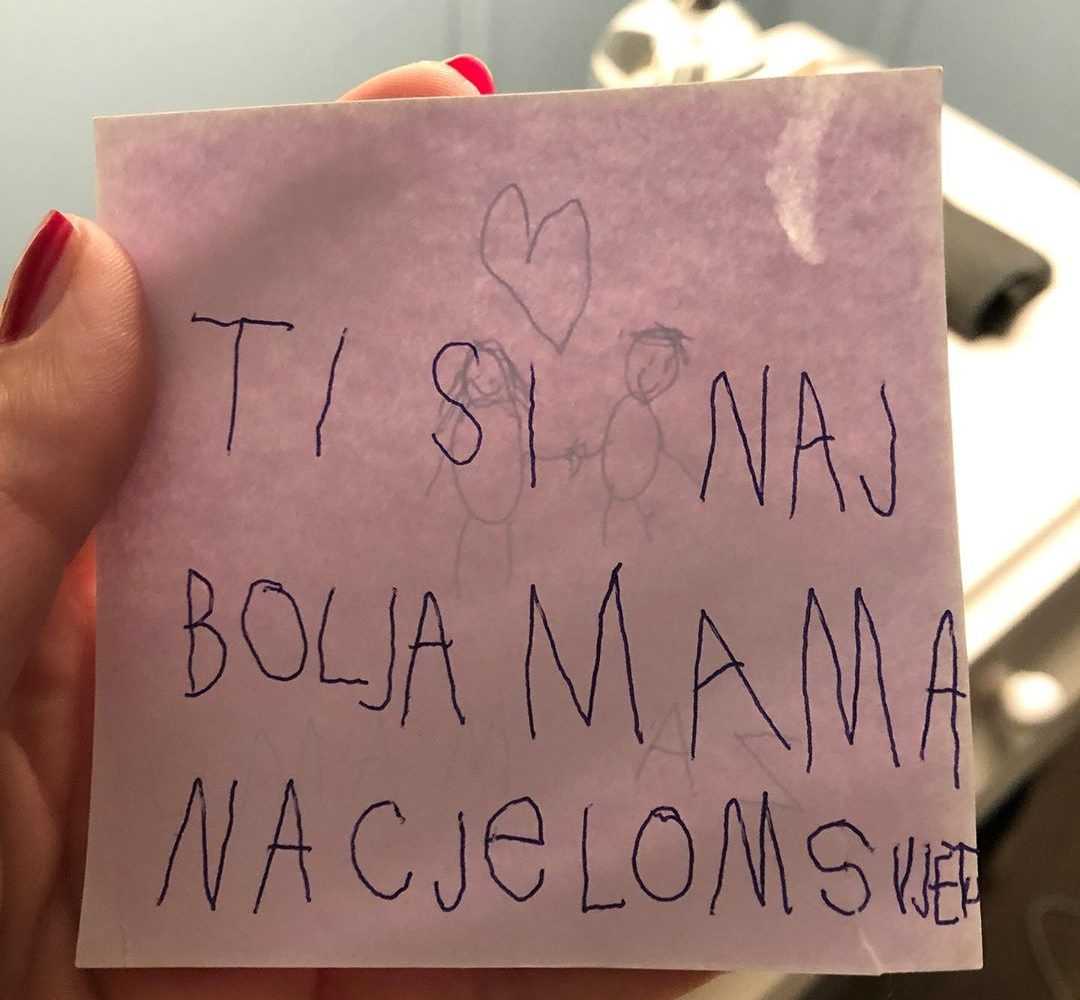 TI SI NAJ
BOLJA MAMA
NA CJeLOM SVJETU